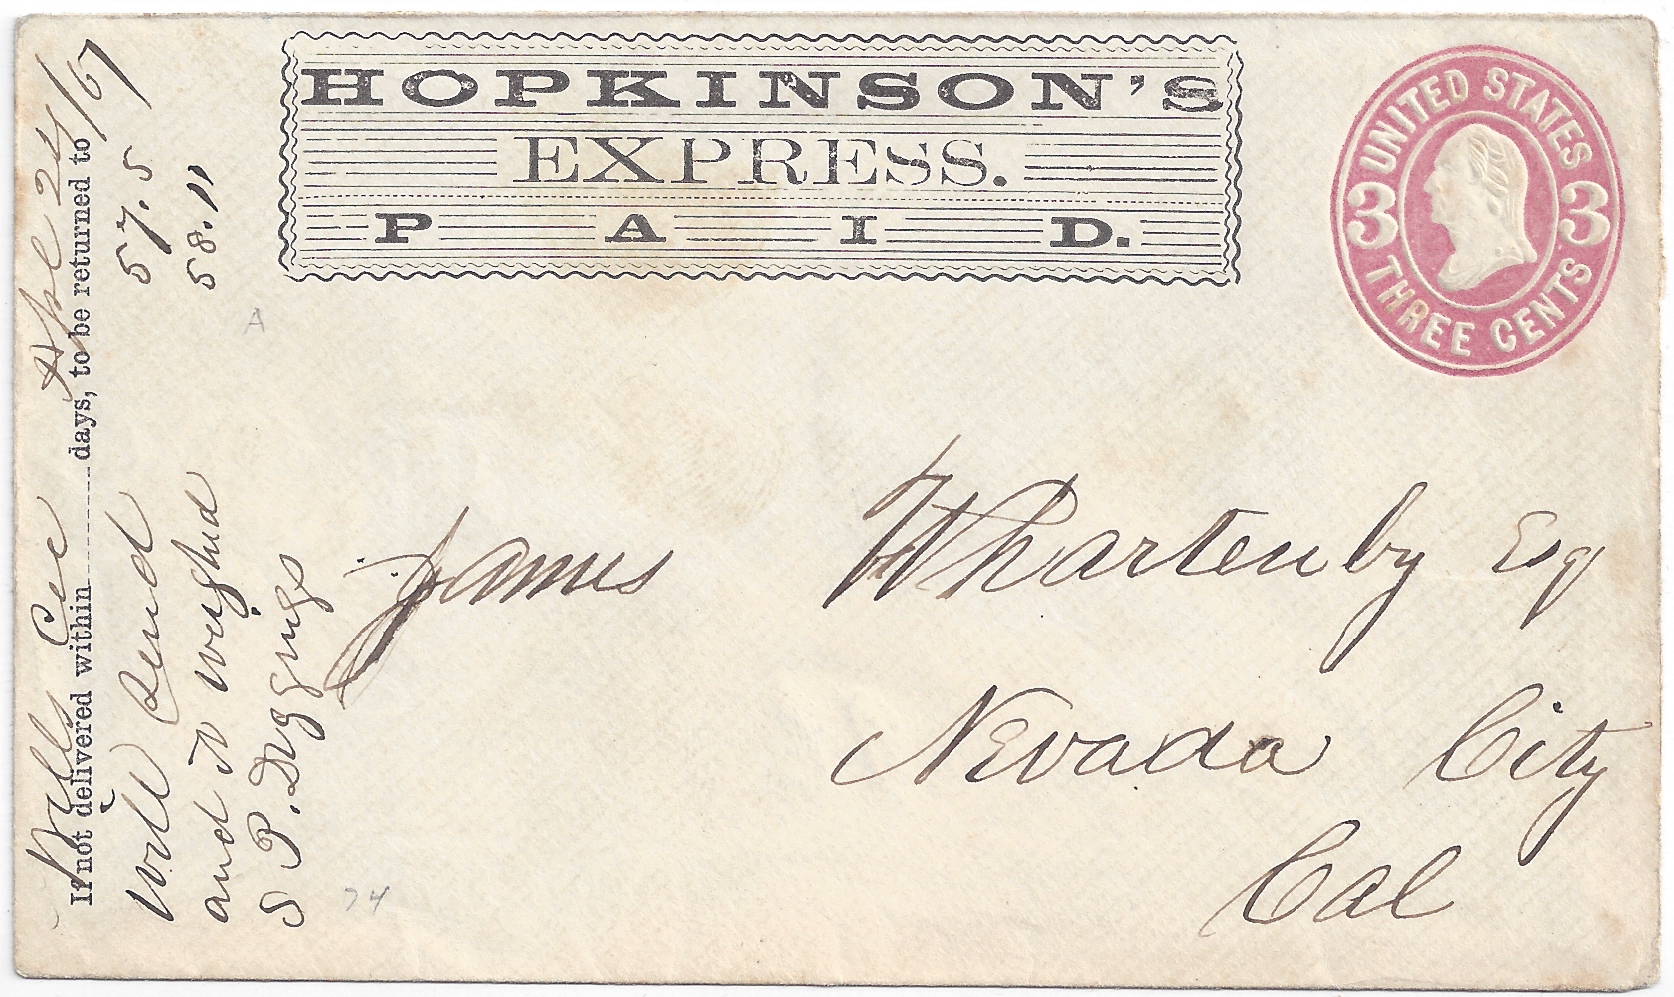 HOPKINSON'S
EXPRESS.
P A I D.
UNITED STATES
3 3
THREE CENTS
James Whartenby Esq
Nevada City
Cal
If not delivered within days, to be returned to
24/67
57.5
58.11
will send
and it weighed
S P.
A
74